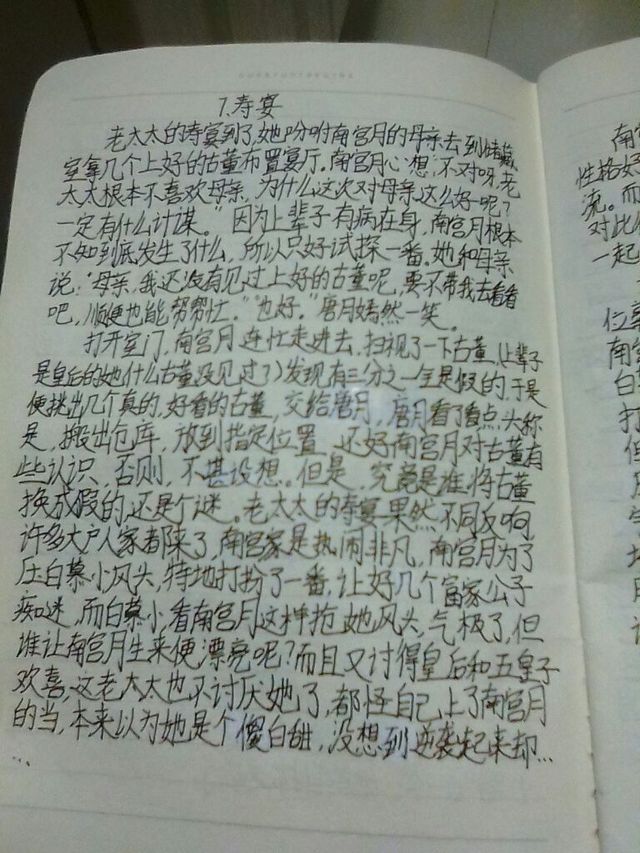 7.寿宴
老太太的寿宴到了,她吩咐南宫月的母亲去到储藏
室拿几个上好的古董布置宴厅。南宫月心想"不对呀,老
太太根本不喜欢母亲,为什么这次对母亲这么好呢?
一定有什么计谋。"因为上辈子有病在身,南宫月根本
不知到底发生了什么,所以只好试探一番。她和母亲
说:"母亲,我还没有见过上好的古董呢,要不带我去看看
吧,顺便也能帮帮忙。""也好。"唐月嫣然一笑。
打开室门,南宫月连忙走进去,扫视了一下古董,(上辈子
是皇后的她什么古董没见过了)发现有三分之一全是假的,于是
便挑出几个真的,好看的古董,交给唐月,唐月看了点点头称
是,搬出仓库,放到指定位置。还好南宫月对古董有
些认识,否则,不甚设想。但是,究竟是谁将古董
换成假的,还是个谜。老太太的寿宴果然不同反响,
许多大户人家都来了,南宫家是热闹非凡,南宫月为了
压白慕小风头,特地打扮了一番,让好几个富家公子
痴迷,而白慕小看南宫月这样抢她风头,气极了,但
谁让南宫月生来便漂亮呢?而且又讨得皇后和五皇子
欢喜,这老太太也不讨厌她了,都怪自己上了南宫月
的当,本来以为她是个傻白甜,没想到逆袭起来却...
...
南
性格好
流。而
对此
一起
位
南宫
白
打
但